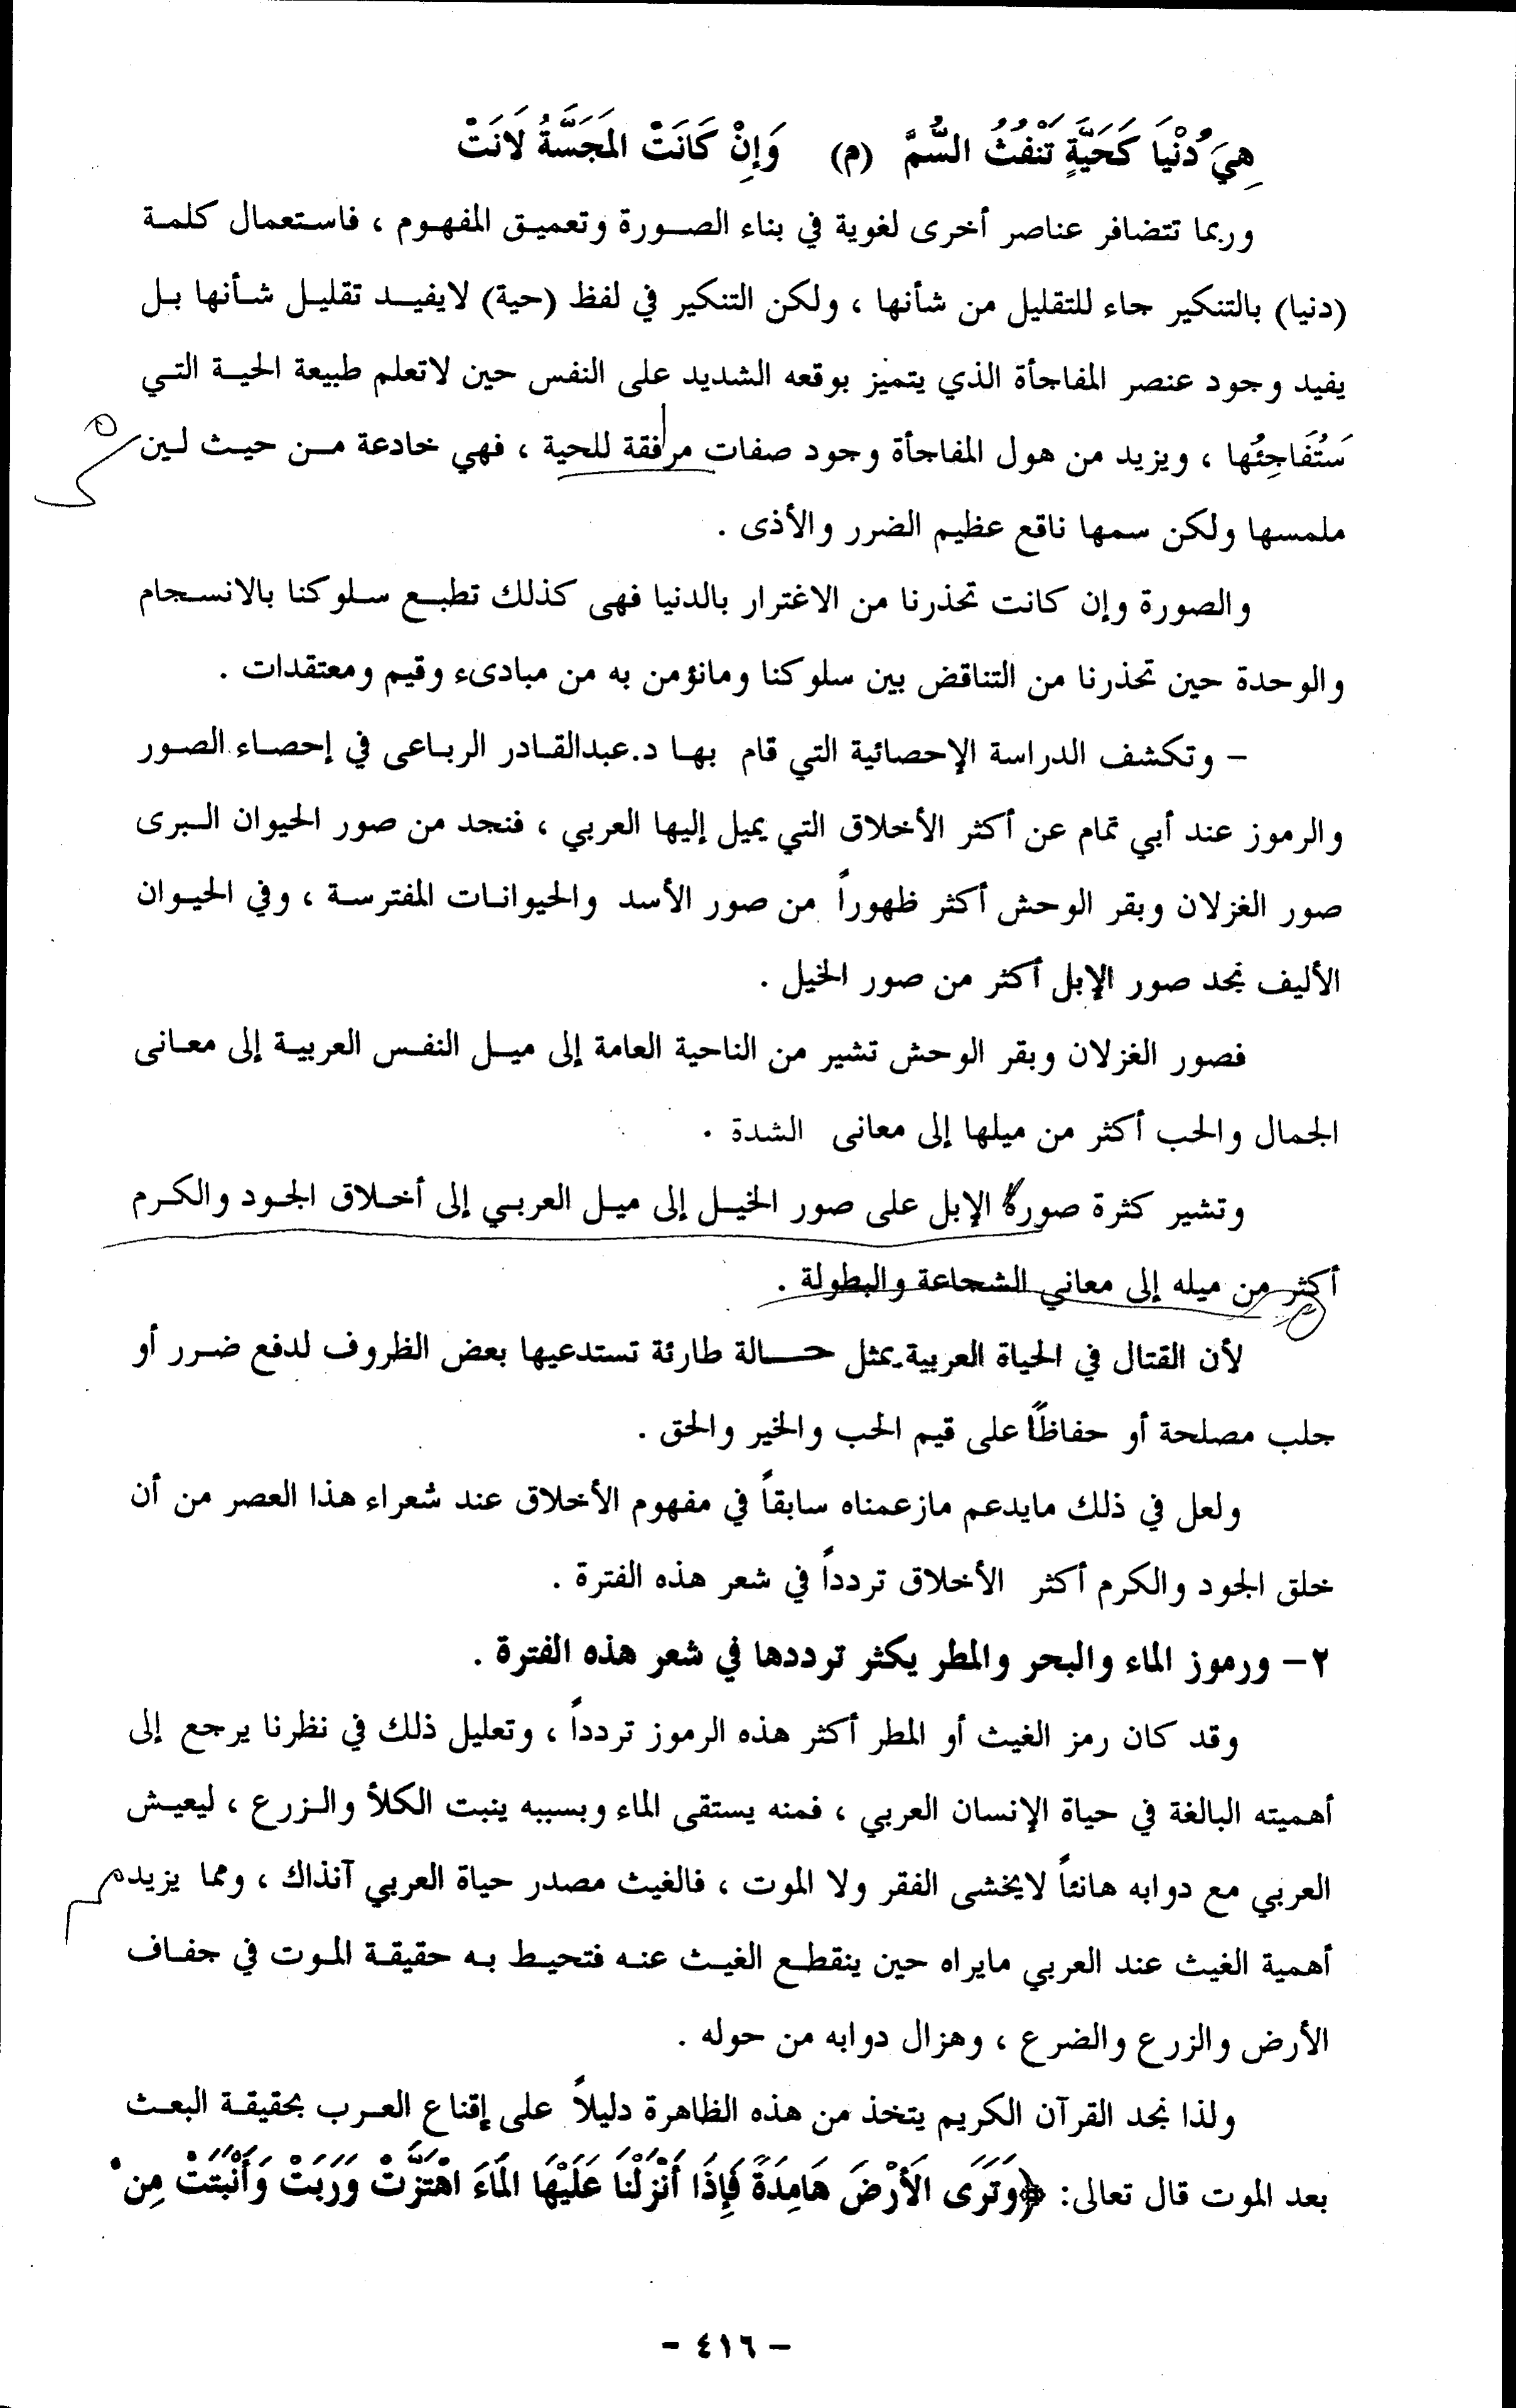 هِيَ دُنْيَا كَحَيَّةٍ تَنْفُثُ السُّمَّ (م) وَإِنْ كَانَتْ المَجَسَّةُ لَانَتْ
وربما تتضافر عناصر أخرى لغوية في بناء الصورة وتعميق المفهوم ، فاستعمال كلمة
(دنيا) بالتنكير جاء للتقليل من شأنها ، ولكن التنكير في لفظ (حية) لايفيد تقليل شأنها بل
يفيد وجود عنصر المفاجأة الذي يتميز بوقعه الشديد على النفس حين لاتعلم طبيعة الحية التي
سَتُفَاجِئُها ، ويزيد من هول المفاجأة وجود صفات مرافقة للحية ، فهي خادعة من حيث لين
ملمسها ولكن سمها ناقع عظيم الضرر والأذى .
والصورة وإن كانت تحذرنا من الاغترار بالدنيا فهى كذلك تطبع سلوكنا بالانسجام
والوحدة حين تحذرنا من التناقض بين سلوكنا ومانؤمن به من مبادىء وقيم ومعتقدات .
– وتكشف الدراسة الإحصائية التي قام بها د.عبدالقادر الرباعى في إحصاء الصور
والرموز عند أبي تمام عن أكثر الأخلاق التي يميل إليها العربي ، فنجد من صور الحيوان البرى
صور الغزلان وبقر الوحش أكثر ظهوراً من صور الأسد والحيوانات المفترسة ، وفي الحيوان
الأليف نجد صور الإبل أكثر من صور الخيل .
فصور الغزلان وبقر الوحش تشير من الناحية العامة إلى ميل النفس العربية إلى معانى
الجمال والحب أكثر من ميلها إلى معانى الشدة .
وتشير كثرة صورة الإبل على صور الخيل إلى ميل العربي إلى أخلاق الجود والكرم
أكثر من ميله إلى معاني الشجاعة والبطولة .
لأن القتال في الحياة العربية يمثل حالة طارئة تستدعيها بعض الظروف لدفع ضرر أو
جلب مصلحة أو حفاظاً على قيم الحب والخير والحق .
ولعل في ذلك مايدعم مازعمناه سابقاً في مفهوم الأخلاق عند شعراء هذا العصر من أن
خلق الجود والكرم أكثر الأخلاق تردداً في شعر هذه الفترة .
٢– ورموز الماء والبحر والمطر يكثر ترددها في شعر هذه الفترة .
وقد كان رمز الغيث أو المطر أكثر هذه الرموز تردداً ، وتعليل ذلك في نظرنا يرجع إلى
أهميته البالغة في حياة الإنسان العربي ، فمنه يستقى الماء وبسببه ينبت الكلأ والزرع ، ليعيش
العربي مع دوابه هانئاً لايخشى الفقر ولا الموت ، فالغيث مصدر حياة العربي آنذاك ، ومما يزيد
أهمية الغيث عند العربي مايراه حين ينقطع الغيث عنه فتحيط به حقيقة الموت في جفاف
الأرض والزرع والضرع ، وهزال دوابه من حوله .
ولذا نجد القرآن الكريم يتخذ من هذه الظاهرة دليلاً على إقناع العرب بحقيقة البعث
بعد الموت قال تعالى: ﴿وَتَرَى الَأرْضَ هَامِدَةً فَإِذَا أَنْزَلْنَا عَلَيْهَا المَاءَ اهْتَزَّتْ وَرَبَتْ وَأَنْبَتَتْ مِن ْ
– ٤١٦ –